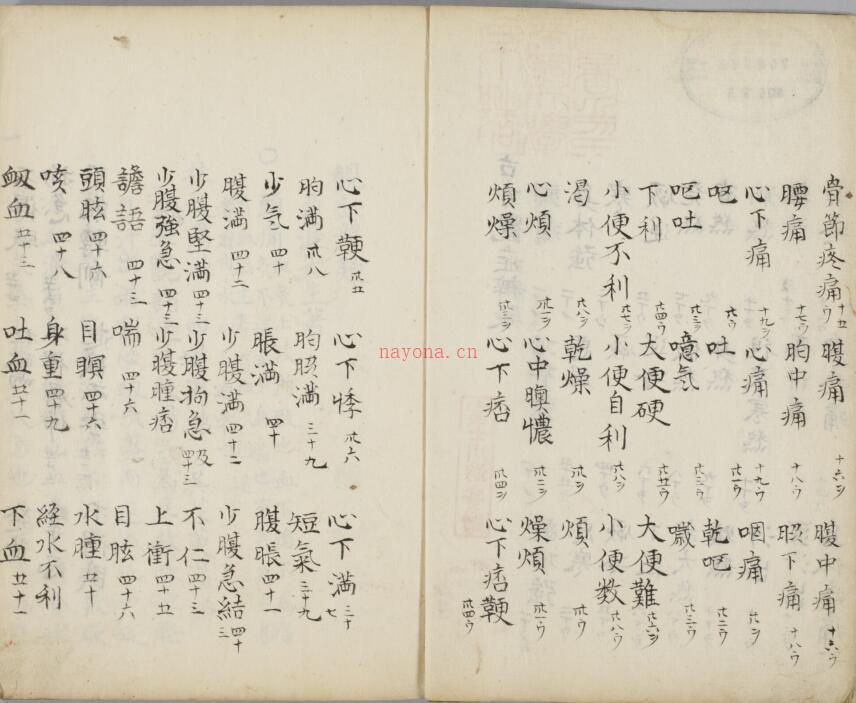 骨節疼痛 十五ウ 腹痛 十六ヲ 腹中痛 十六ウ
腰痛 十七ウ 胸中痛 十八ウ 脇下痛 十八ウ
心下痛 十九ヲ 心痛 十九ウ 咽痛 廿ヲ
呃 廿ウ 吐 廿一ウ 乾呃 廿二ウ
呃吐 廿三ヲ 噫気 廿三ウ 噦 廿三ウ
下利 廿四ウ 大便硬 廿五ウ 大便難 廿六ヲ
小便不利 小便自利 廿八ヲ 小便数 廿八ウ
渇 廿八ヲ 乾燥 廿九ヲ 煩 廿九ウ
心煩 卅一ウ 心中懊憹 卅二ヲ 燥煩 卅一ウ
煩燥 卅三ヲ 心下痞 卅四ヲ 心下痞鞕 卅四ウ
心下鞕 卅五 心下悸 卅六 心下満 三十七
胸満 卅八 胸脇満 三十九 短氣 三十九
少气 四十 脹満 四十 腹脹 四十一
腹満 四十二 少腹満 四十二 少腹急結 四十三
少腹堅満 四十三 少腹拘急 四十三 不仁 四十三
少腹強急 四十三 少腹腫痞 上衝 四十五
譫語 四十三 喘 四十六 目眩 四十六
頭眩 四十六 目瞑 四十六 水腫 五十
咳 四十八 身重 四十九 経水不利
衂血 五十三 吐血 五十一 下血 五十一
nayona.cn